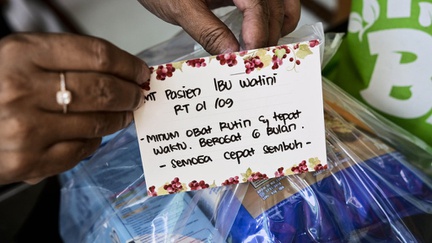 MT Pasien Ibu Watini
RT 01/09
- Minum obat Rutin & tepat
waktu. Berobat 6 Bulan.
- Semoga cepat sembuh -